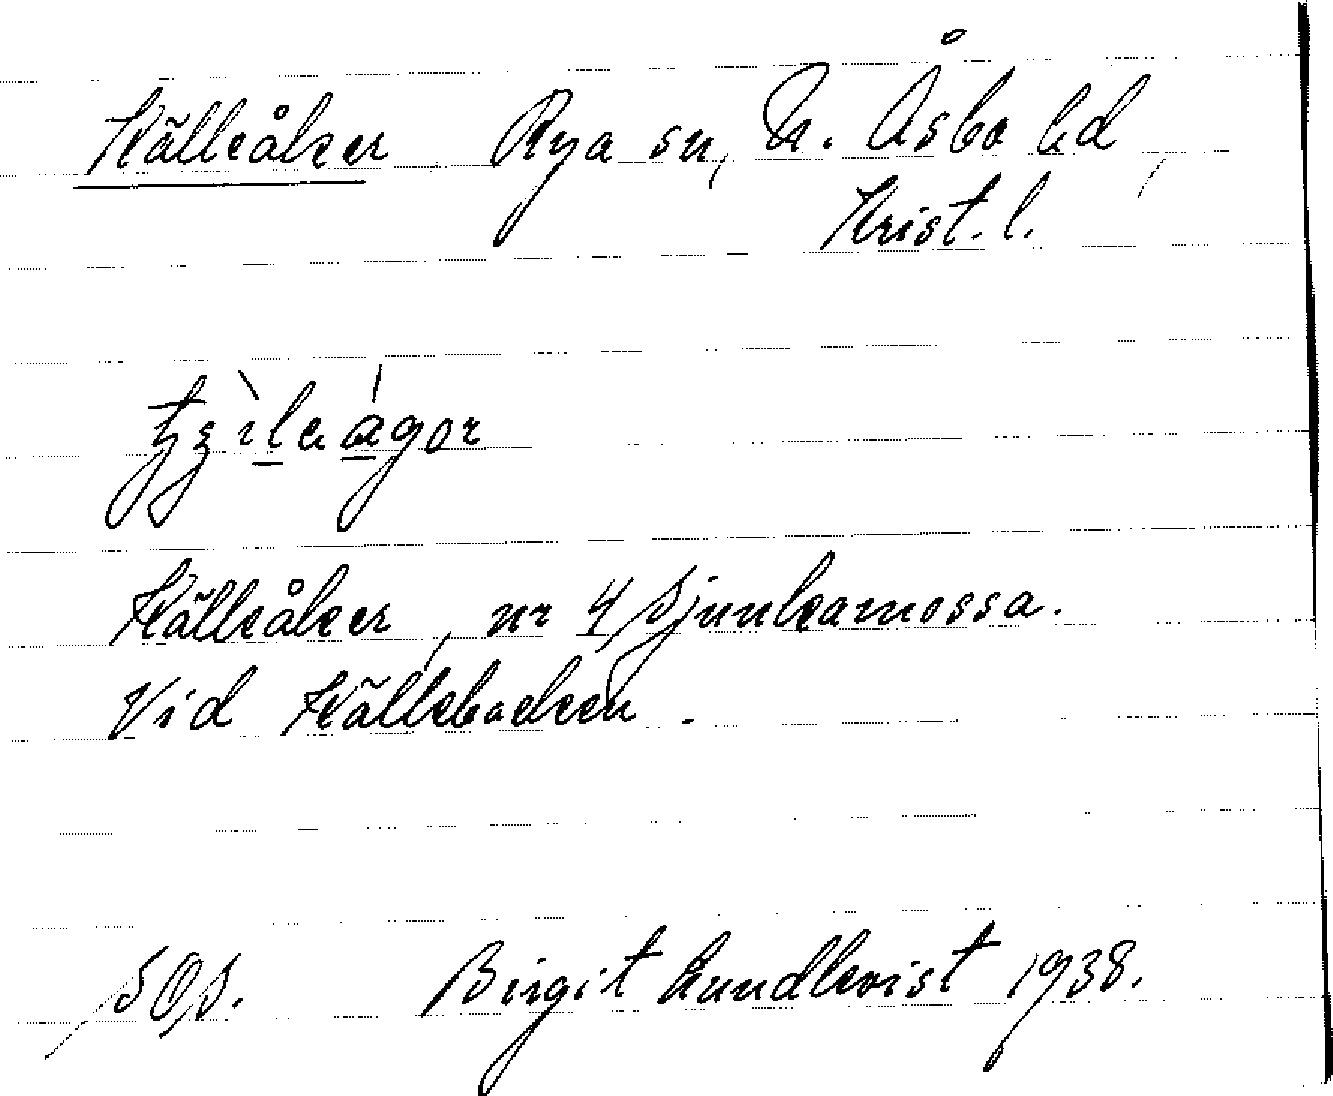 Källeåker Rya sn, N. Åsbo hd,
Krist. l.
Källeåker, nr 4 Sjunkamossa.
Vid Källebacken.
Birgit Lundkvist 1938.